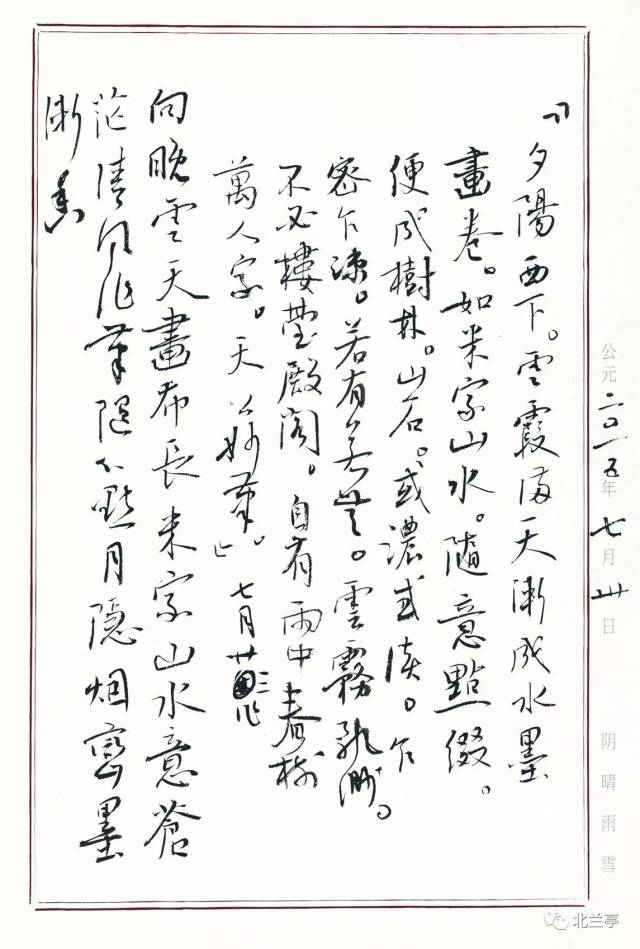 『夕陽西下。雲霞滿天漸成水墨
畫卷。如米家山水。隨意點綴。
便成樹林。山石。或濃或淡。乍
密乍疎。若有若無。雲霧飄渺。
不必樓臺殿閣。自有雨中春樹
萬人家。天公妙筆。』七月廿三作
向晚雲天畫布長米家山水意蒼
茫清風作筆隨心點月隱烟巒墨
漸香
公元二〇一五年七月卅日 阴晴雨雪
北兰亭